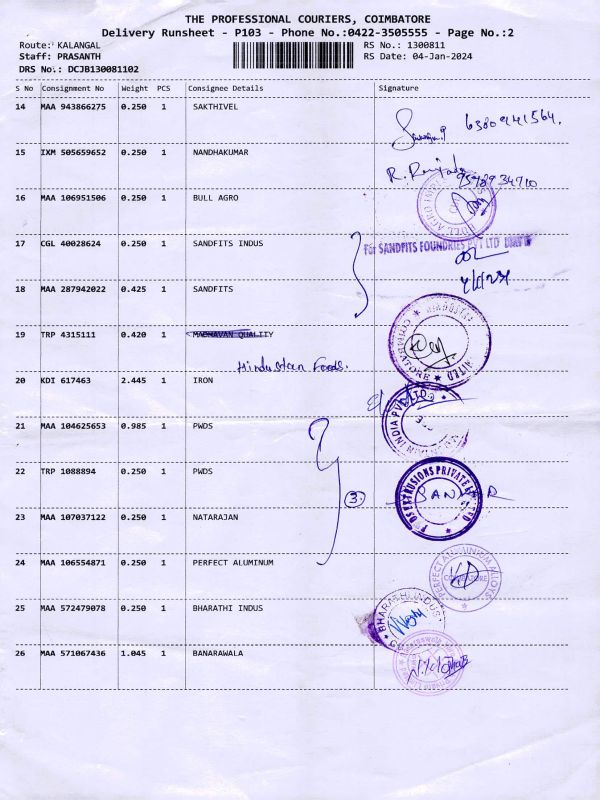 THE PROFESSIONAL COURIERS, COIMBATORE
Delivery Runsheet - P103 - Phone No.:0422-3505555 - Page No.:2
Route: KALANGAL
RS No.: 1300811
Staff: PRASANTH
RS Date: 04-Jan-2024
DRS No.: DCJB130081102
S No Consignment No Weight PCS Consignee Details Signature
14 MAA 943866275 0.250 1 SAKTHIVEL
6380941564.
15 IXM 505659652 0.250 1 NANDHAKUMAR
16 MAA 106951506 0.250 1 BULL AGRO
17 CGL 40028624 0.250 1 SANDFITS INDUS
For SANDFITS FOUNDRIES PVT LTD
18 MAA 287942022 0.425 1 SANDFITS
COIMBATORE
19 TRP 4315111 0.420 1 MADHAVAN QUALITY
Hindustan Foods.
20 KDI 617463 2.445 1 IRON
21 MAA 104625653 0.985 1 PWDS
INDIA PVT LTD
22 TRP 1088894 0.250 1 PWDS
3.
23 MAA 107037122 0.250 1 NATARAJAN
24 MAA 106554871 0.250 1 PERFECT ALUMINUM
PERFECT ALUMINIUM ALLOYS
COIMBATORE
25 MAA 572479078 0.250 1 BHARATHI INDUS
BHARATHI INDUS
26 MAA 571067436 1.045 1 BANARAWALA